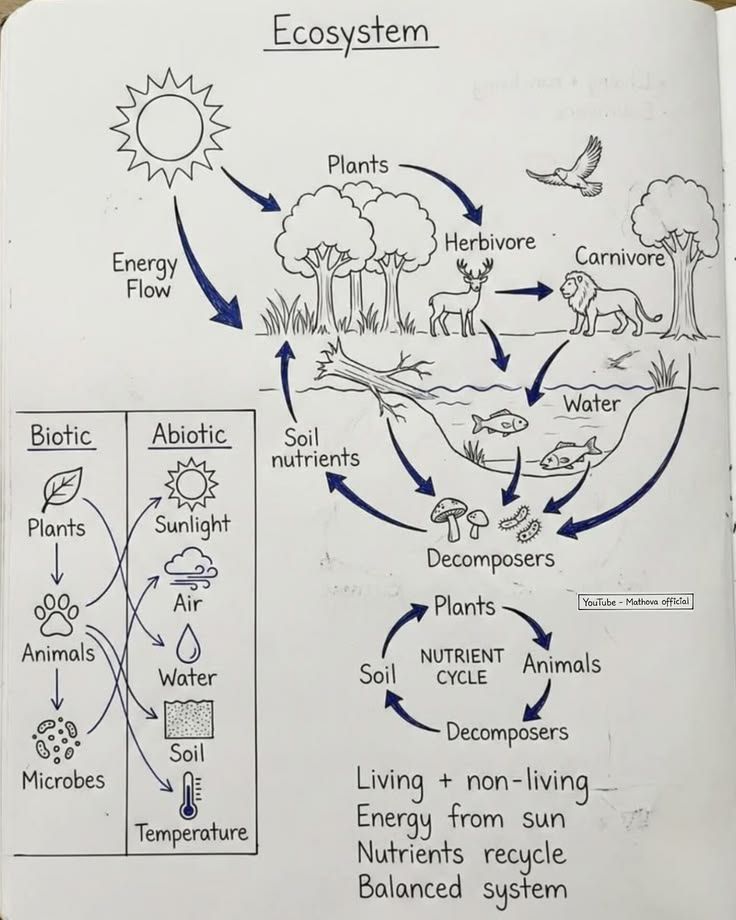 Ecosystem
Plants
Herbivore
Carnivore
Energy
Flow
Water
Soil
nutrients
Decomposers
Biotic
Abiotic
Plants
Sunlight
Air
Animals
Water
Soil
Microbes
Temperature
YouTube - Mathova official
Plants
Soil
NUTRIENT
CYCLE
Animals
Decomposers
Living + non-living
Energy from sun
Nutrients recycle
Balanced system